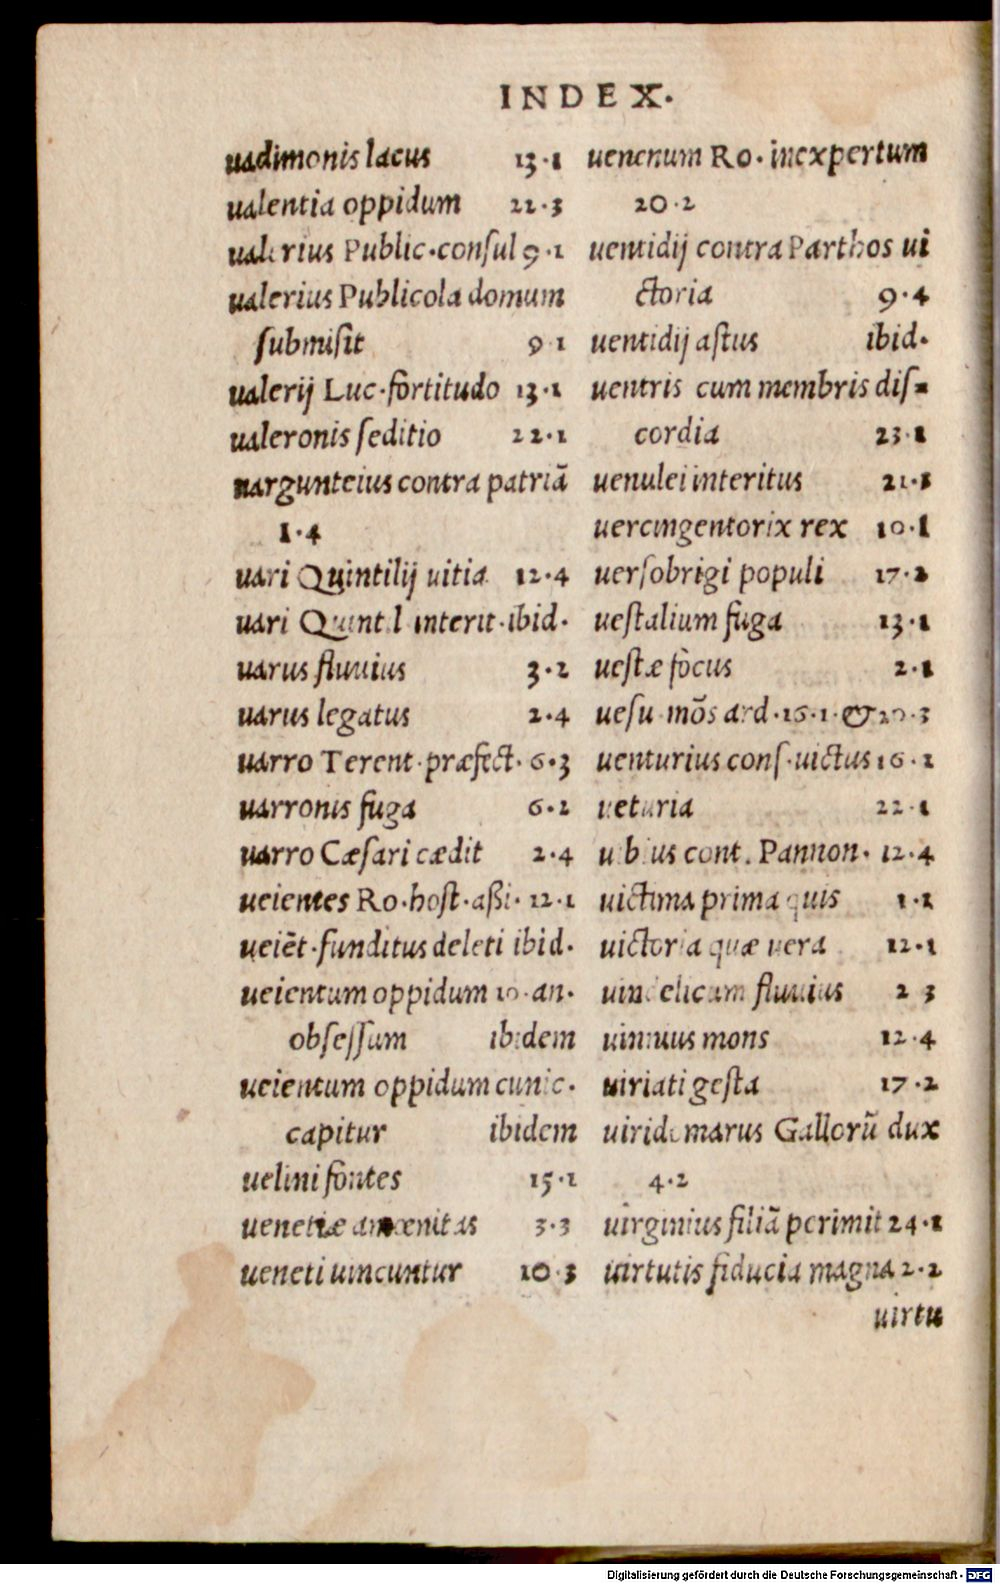 INDEX.
uadimonis lacus 13.1
ualentia oppidum 22.3
ualerius Public.conſul 9.1
ualerius Publicola domum
ſubmiſit 9 1
ualerij Luc.fortitudo 13.1
ualeronis ſeditio 22.1
nargunteius contra patriā
1.4
uari Quintilij uitia 12.4
uari Quint l interit.ibid.
uarus fluuius 3.2
uarus legatus 2.4
uarro Terent.præfect. 6.3
uarronis fuga 6.2
uarro Cæſari cædit 2.4
ueientes Ro.hoſt.aßi. 12.1
ueiēt.funditus deleti ibid.
ueientum oppidum 10.an.
obſeſſum ibidem
ueientum oppidum cunic.
capitur ibidem
uelini fontes 15.1
uenetiæ amœnitas 3.3
ueneti uincuntur 10.3
uenenum Ro. inexpertum
20.2
uentidij contra Parthos ui
ctoria 9.4
uentidij aſtus ibid.
uentris cum membris diſ-
cordia 23.1
uenulei interitus 21.1
uercingentorix rex 10.1
uerſobrigi populi 17.2
ueſtalium fuga 13.1
ueſtæ focus 2.1
ueſu.mōs ard.16.1.& 20.3
uenturius conſ.uictus 16.2
ueturia 22.1
uibius cont. Pannon. 12.4
uictima prima quis 1.1
uictoria quæ uera 12.1
uindelicum fluuius 2 3
uinnius mons 12.4
uiriati geſta 17.2
uiridomarus Gallorū dux
4.2
uirginius filiā perimit 24.1
uirtutis fiducia magna 2.2
uirtu
Digitalisierung gefördert durch die Deutsche Forschungsgemeinschaft - DFG